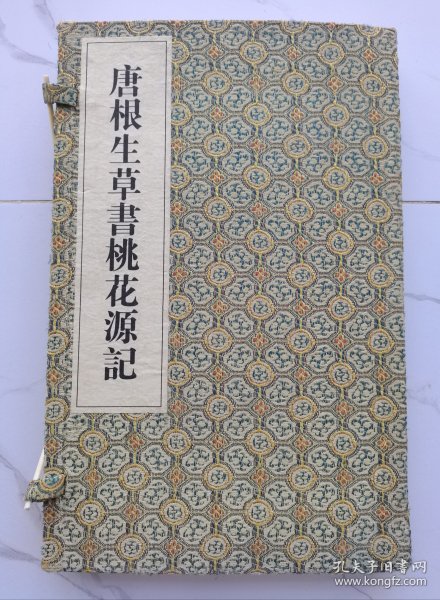 唐根生草書桃花源記
孔夫子旧书网
www.kongfz.com